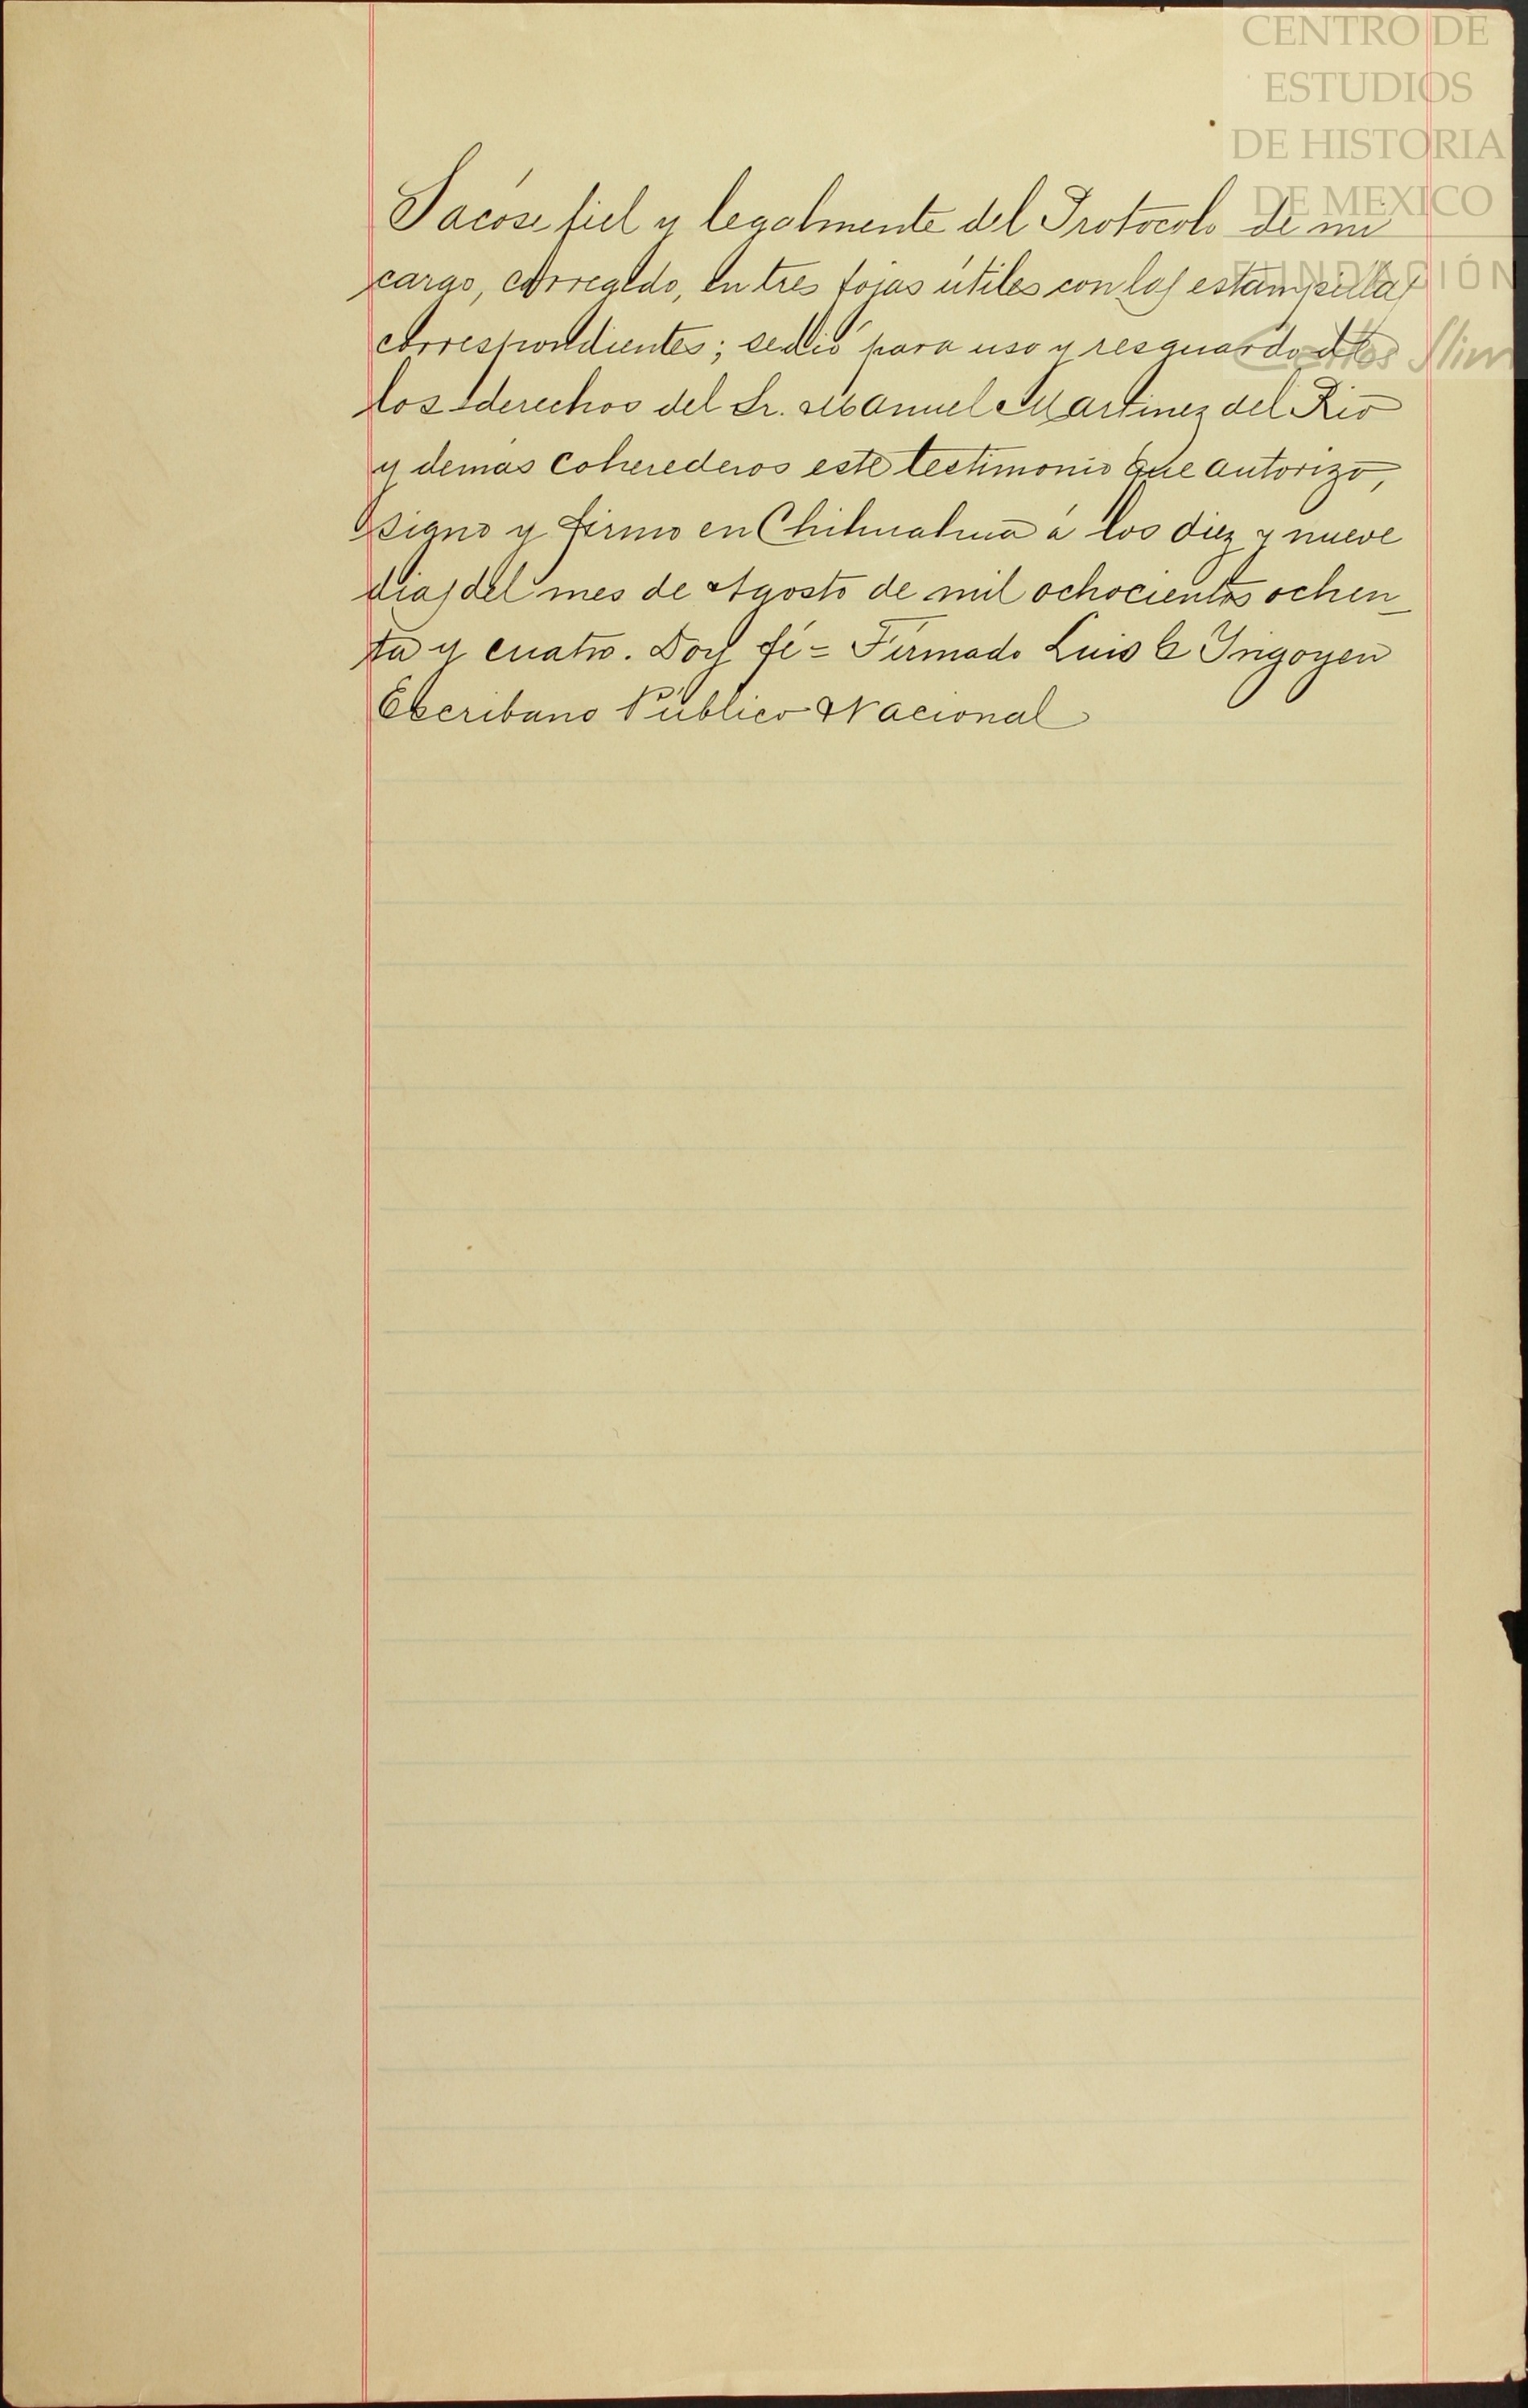 CENTRO DE
ESTUDIOS
DE HISTORIA
DE MEXICO
FUNDACIÓN
Carlos Slim
Sacóse fiel y legalmente del Protocolo de mi
cargo, corregido, en tres fojas útiles con las estampillas
correspondientes; se dió para uso y resguardo de
los derechos del Sr. Manuel Martinez del Rio
y demás coherederos este testimonio que autorizo,
signo y firmo en Chihuahua á los diez y nueve
dias del mes de Agosto de mil ochocientos ochen
ta y cuatro. Doy fé = Firmado Luis C Yrigoyen
Escribano Público Nacional